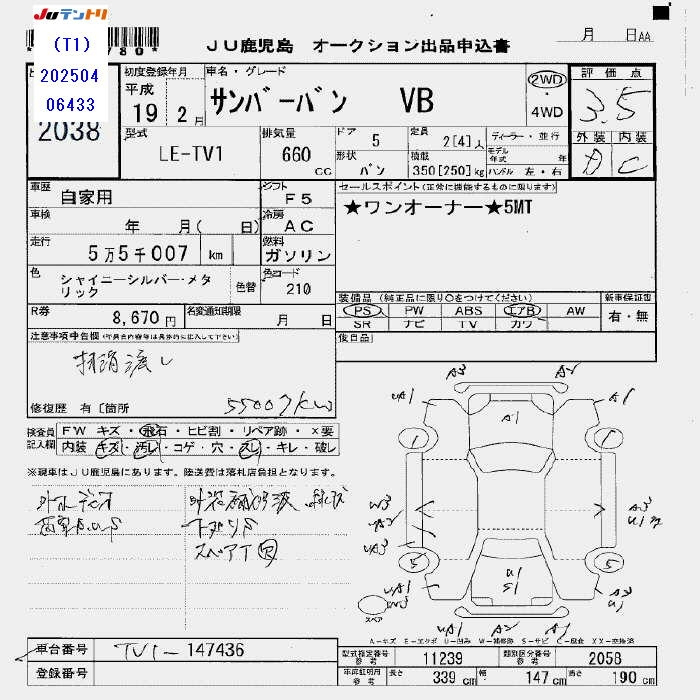 JUテントリ
(T1)
202504
06433
2038
JU鹿児島 オークション出品申込書
月 日AA
初度登録年月
平成
19 2月
車名・グレード
サンバーバン VB
2WD
・
4WD
評価点
3.5
外装 内装
D C
型式
LE-TV1
排気量
660
CC
ドア 5
形状 バン
定員 2[4]人
積載 350[250]kg
ディーラー・並行
モデル年式 年
ハンドル 左・右
車歴 自家用
シフト F5
車検 年 月( 日)
冷房 AC
走行 5万5千007 km
燃料 ガソリン
色 シャイニーシルバー・メタリック
色替
色コード 210
R券 8,670円
名変通知期限 月 日
セールスポイント(正常に機能するものに限ります)
★ワンオーナー★5MT
装備品(純正品に限り○をつけてください)
新車保証書
PS PW ABS エアB AW
SR ナビ TV カワ
有・無
後日品
注意事項申告欄
抹消渡し
修復歴 有〔箇所
55007km
検査員記入欄
FW キズ・飛石・ヒビ割・リペア跡・X要
内装 キズ・汚レ・コゲ・穴・スレ・キレ・破レ
※現車はJU鹿児島にあります。陸送費は落札店負担となります。
下回りS
スペアT
A3 A2
UA1 A1
A1
1 1
W3
UA2
UA3
A3
5 5
U1
S1
UA1
W3
A2
U1
UA1 A2
スペア
A-キズ E-エクボ U-凹み W-補修跡 S-サビ C-腐食 XX-交換済
車台番号 TV1-147436
登録番号
型式指定番号 参考 11239
類別区分番号 参考 2058
車庫証明用 参考 長さ 339cm 幅 147cm 高さ 190cm